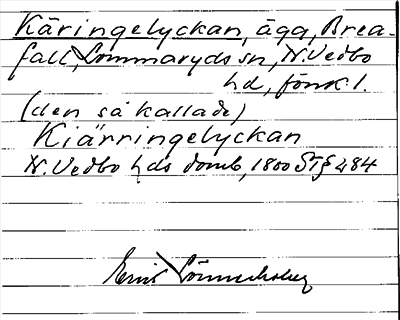 Käringelyckan, äga, Brea-
fall, Lommaryds sn, N. Vedbo
hd, Jönk. l.
(den så kallade)
Kiärringelyckan
N. Vedbo hds domb, 1800 ST § 284
Emil